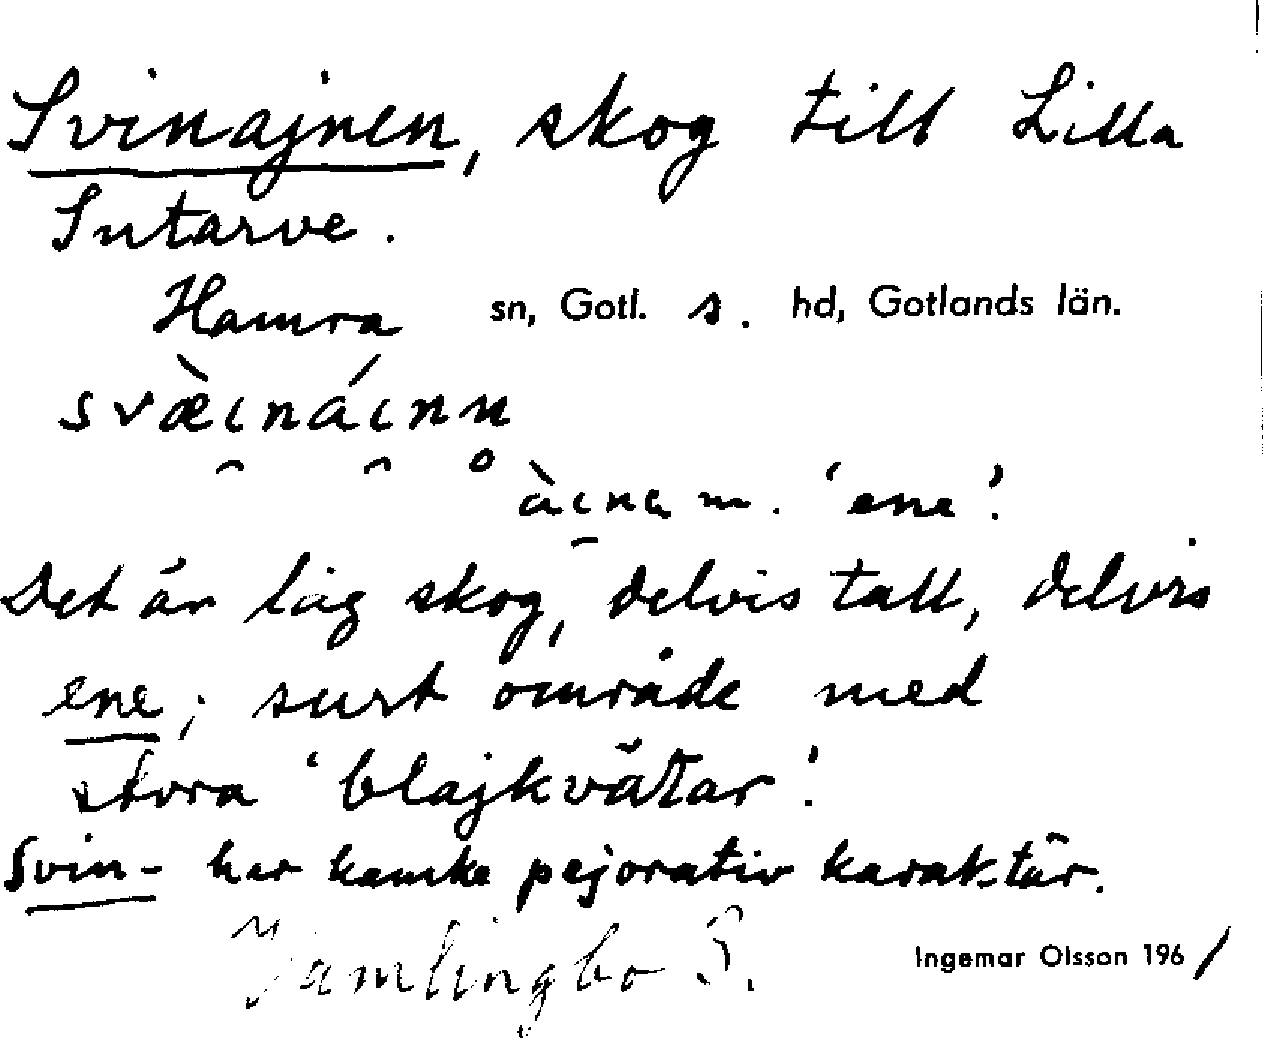 Svinajnen, skog till Lilla
Sutarve.
Hamra sn, Gotl. s. hd, Gotlands län.
svæ̀ı̯náı̯nn̥
àı̯na m. 'ene'.
Det är låg skog, delvis tall, delvis
ene; surt område med
stora 'blajkvätar'.
Svin- har kanske pejorativ karaktär.
Vamlingbo S.
Ingemar Olsson 1961